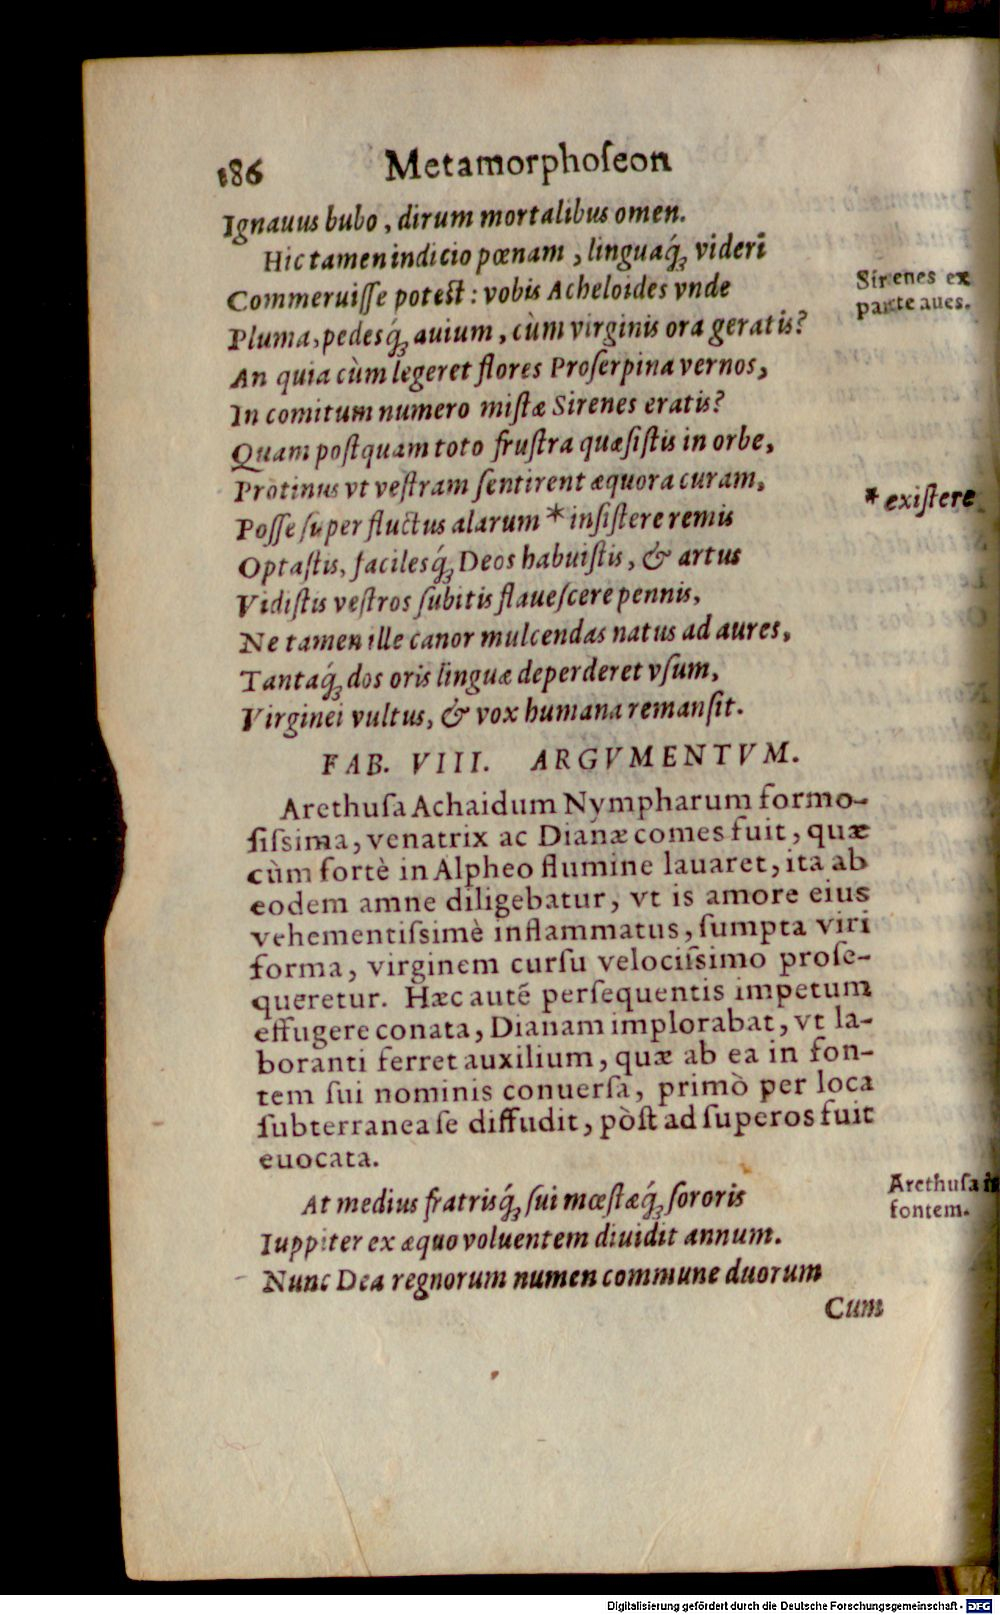 186 Metamorphoſeon
Ignauus bubo, dirum mortalibus omen.
Hic tamen indicio pœnam, linguaq́; videri
Commeruiſſe poteſt: vobis Acheloides vnde
Sirenes ex
parte aues.
Pluma, pedesq́; auium, cùm virginis ora geratis?
An quia cùm legeret flores Proſerpina vernos,
In comitum numero miſtæ Sirenes eratis?
Quam poſtquam toto fruſtra quæſiſtis in orbe,
Protinus vt veſtram ſentirent æquora curam,
Poſſe ſuper fluctus alarum * inſiſtere remis
* exiſtere
Optaſtis, facilesq́; Deos habuiſtis, & artus
Vidiſtis veſtros ſubitis flaueſcere pennis,
Ne tamen ille canor mulcendas natus ad aures,
Tantaq́; dos oris linguæ deperderet vſum,
Virginei vultus, & vox humana remanſit.
FAB. VIII. ARGVMENTVM.
Arethuſa Achaidum Nympharum formo-
ſiſsima, venatrix ac Dianæ comes fuit, quæ
cùm fortè in Alpheo flumine lauaret, ita ab
eodem amne diligebatur, vt is amore eius
vehementiſsimè inflammatus, ſumpta viri
forma, virginem curſu velociſsimo proſe-
queretur. Hæc autẽ perſequentis impetum
effugere conata, Dianam implorabat, vt la-
boranti ferret auxilium, quæ ab ea in fon-
tem ſui nominis conuerſa, primò per loca
ſubterranea ſe diffudit, pòſt ad ſuperos fuit
euocata.
At medius fratrisq́; ſui mœſtæq́; ſororis
Arethuſa in
fontem.
Iuppiter ex æquo voluentem diuidit annum.
Nunc Dea regnorum numen commune duorum
Cum
Digitalisierung gefördert durch die Deutsche Forschungsgemeinschaft - DFG